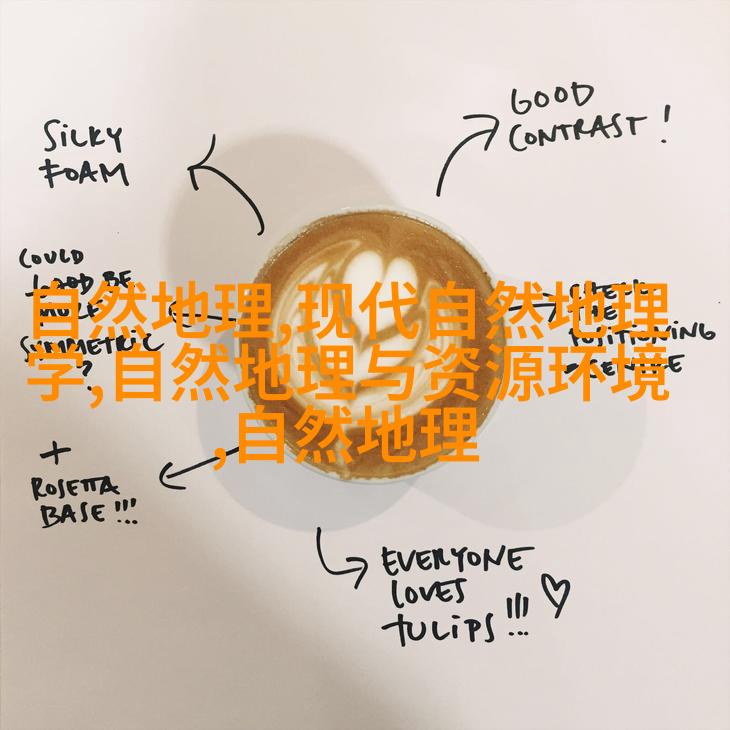 GOOD
CONTRAST!
SILKY
FOAM
COULD
MORE
SYMMETRIC
?
POSITIONING
自然地理,现代自然地理
学,自然地理与资源环境
,自然地理
+
ROSETTA
BASE!!!
EVERYONE
LOVES
TULIPS!!! ♡